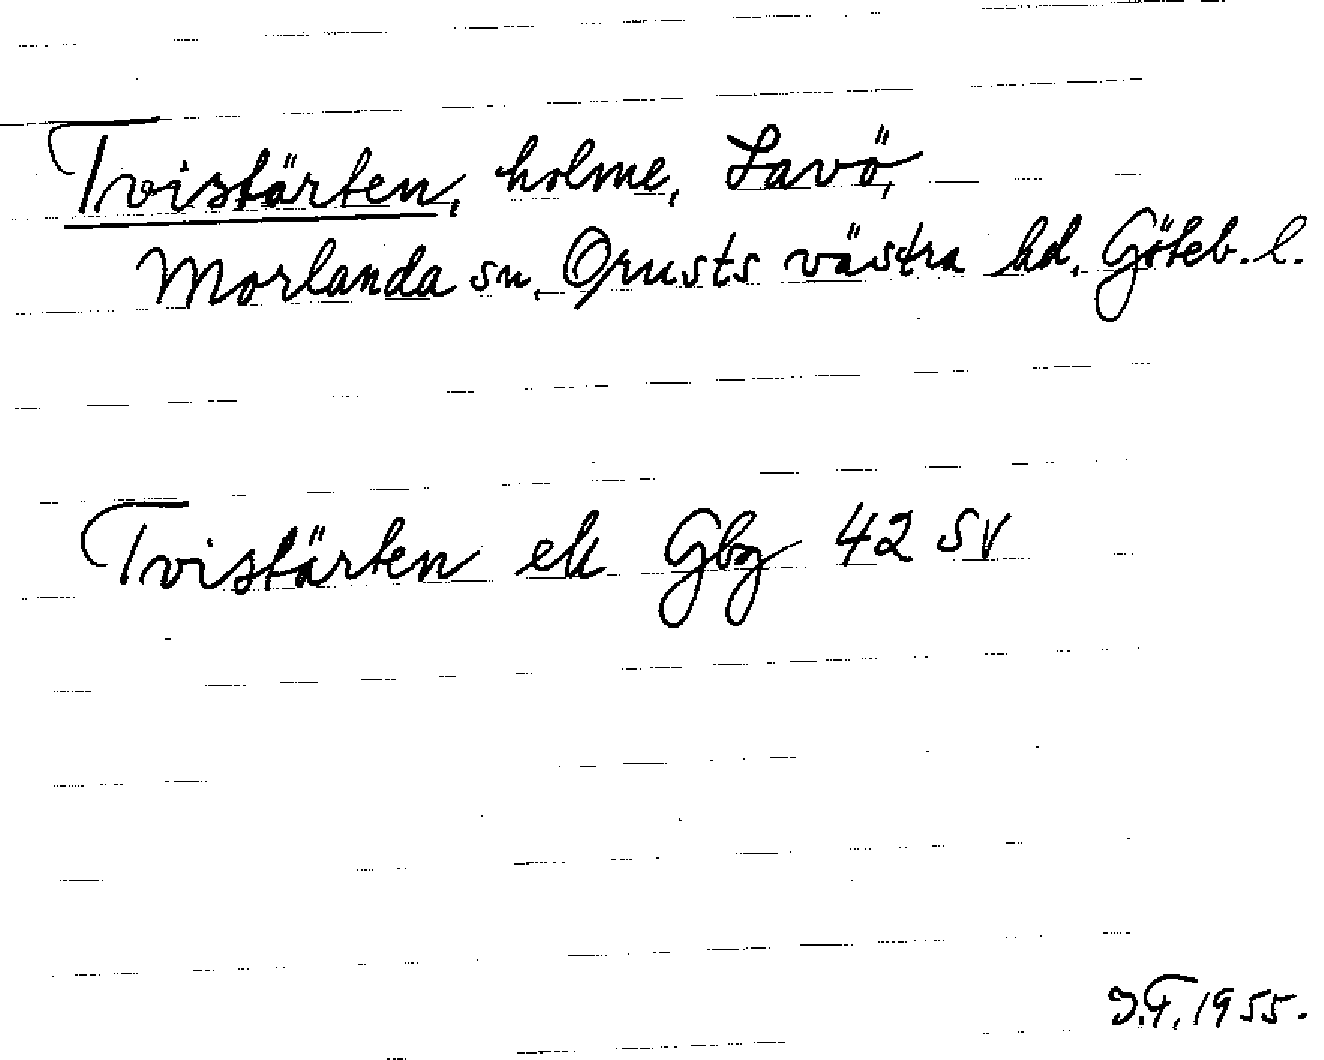 Tvistärten, holme, Lavö,
Morlanda sn. Orusts västra hd. Göteb. l.
Tvistärten ek Gbg 42 SV
J.T. 1955.